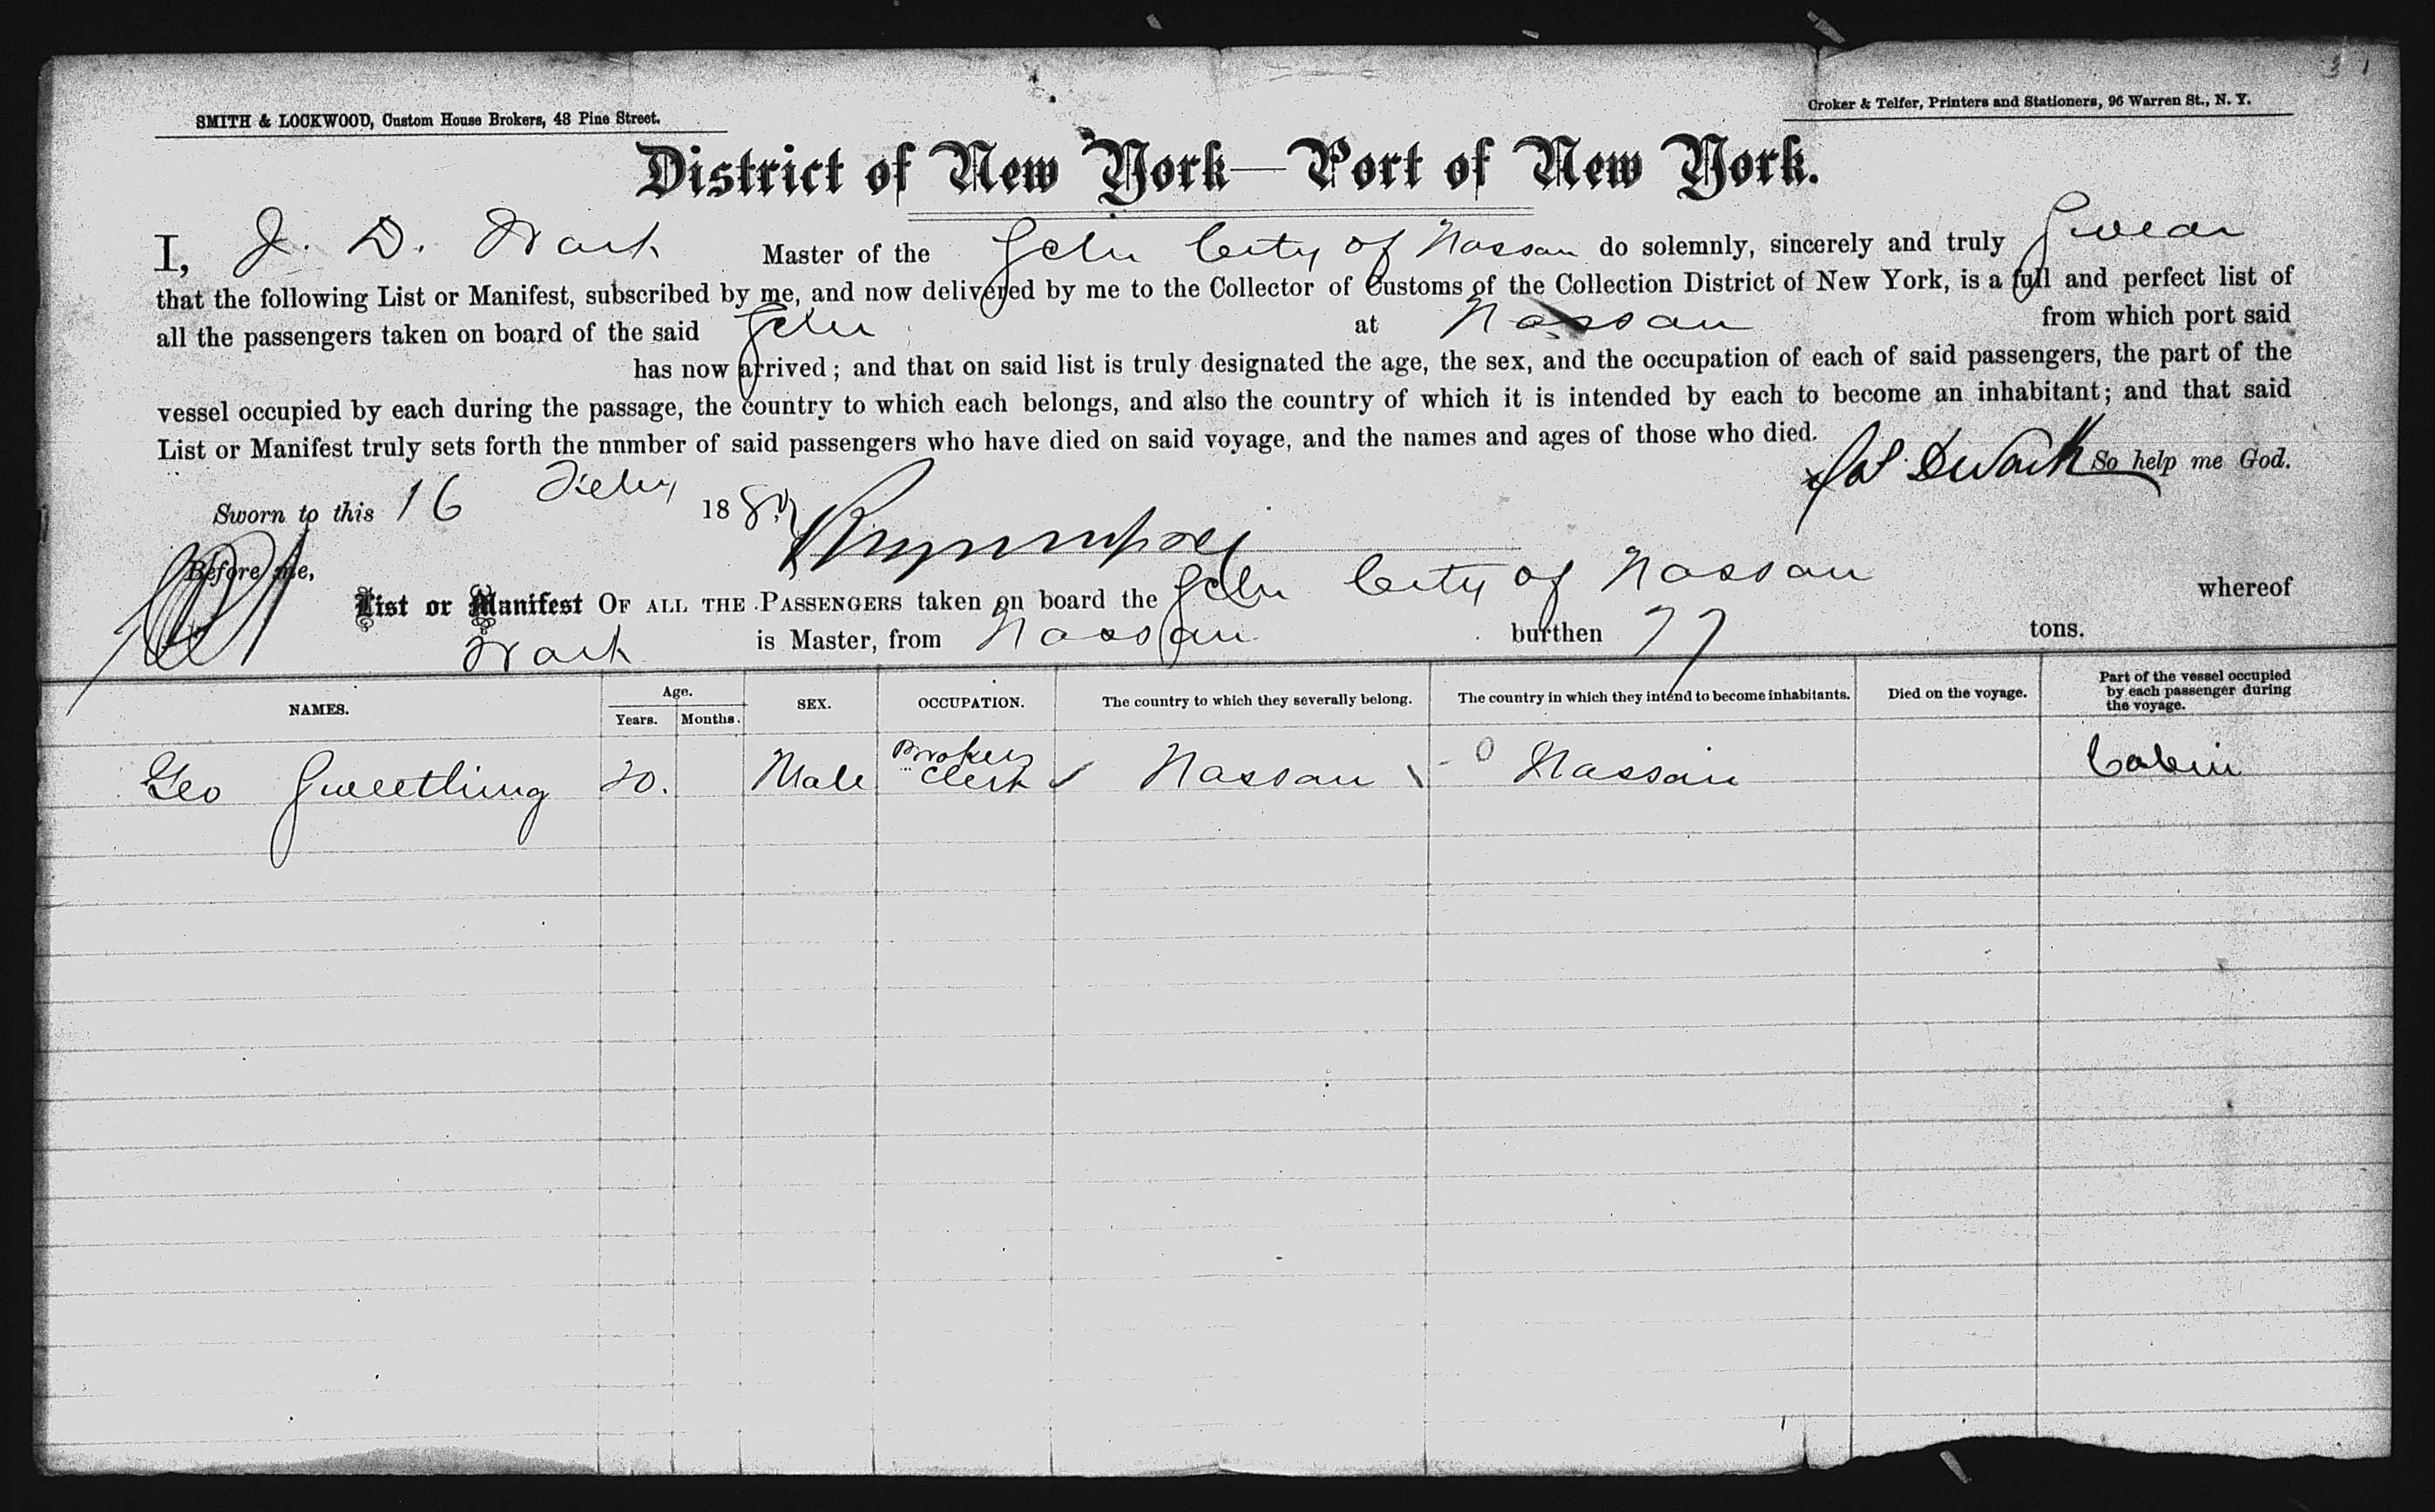 SMITH & LOCKWOOD, Custom House Brokers, 48 Pine Street.
Croker & Telfer, Printers and Stationers, 96 Warren St., N. Y.
District of New York—Port of New York.
I, J. D. Wark Master of the Schr City of Nassau do solemnly, sincerely and truly Swear
that the following List or Manifest, subscribed by me, and now delivered by me to the Collector of Customs of the Collection District of New York, is a full and perfect list of
all the passengers taken on board of the said Schr at Nassau from which port said
has now arrived; and that on said list is truly designated the age, the sex, and the occupation of each of said passengers, the part of the
vessel occupied by each during the passage, the country to which each belongs, and also the country of which it is intended by each to become an inhabitant; and that said
List or Manifest truly sets forth the nnmber of said passengers who have died on said voyage, and the names and ages of those who died.
So help me God.
Sworn to this 16 Feby 188
Before me,
List or Manifest OF ALL THE PASSENGERS taken on board the Schr City of Nassau whereof
Wark is Master, from Nassau burthen 77 tons.
NAMES. Age. Years. Months. SEX. OCCUPATION. The country to which they severally belong. The country in which they intend to become inhabitants. Died on the voyage. Part of the vessel occupied by each passenger during the voyage.
Geo Sweetling 20. Male Brokers Clerk Nassau Nassau Cabin